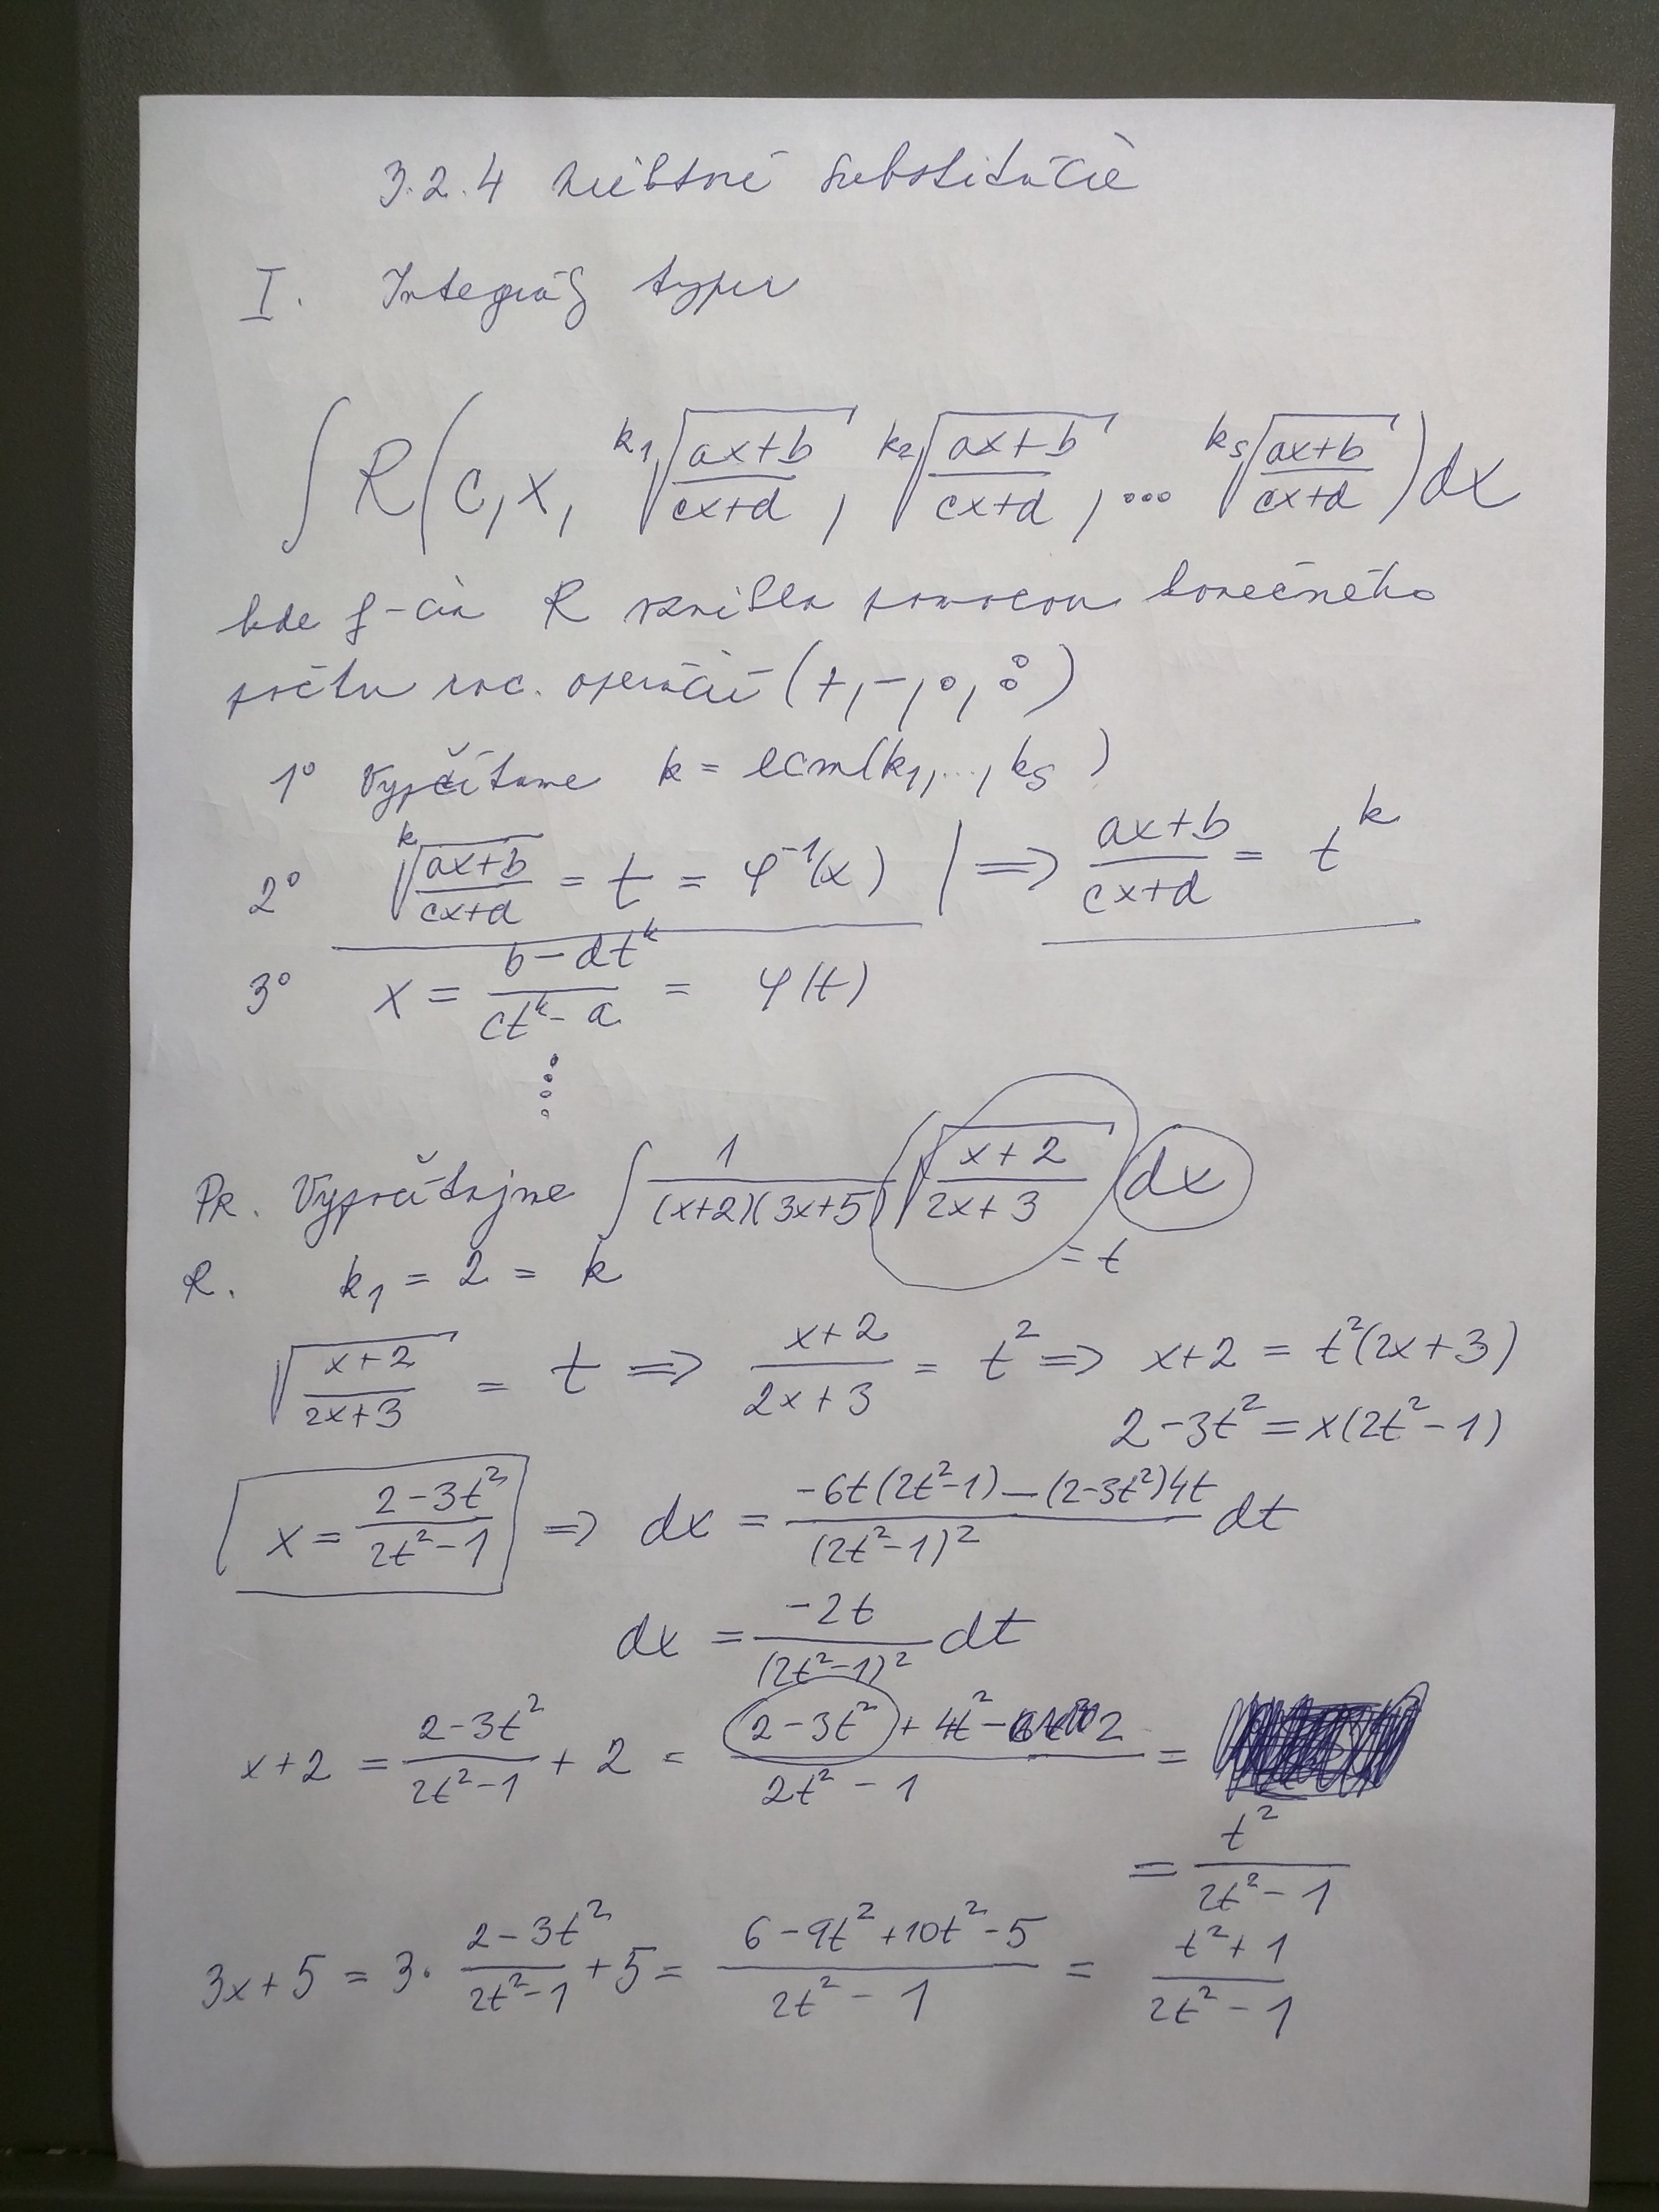 3.2.4 Zvláštne substitúcie
I. Integrál typu
∫ R(c, x, ᵏ¹√((ax+b)/(cx+d)), ᵏ²√((ax+b)/(cx+d)), ... ᵏˢ√((ax+b)/(cx+d))) dx
kde f-cia R vznikla pomocou konečného
počtu rac. operácií (+, -, ∘, ÷)
1° Vypočítame k = lcm(k₁, ..., kₛ)
2° ᵏ√((ax+b)/(cx+d)) = t = φ⁻¹(x) | ⇒ (ax+b)/(cx+d) = tᵏ
3° x = (b-dtᵏ)/(ctᵏ-a) = φ(t)
⋮
Pr. Vypočítajme ∫ 1/((x+2)(3x+5)) √((x+2)/(2x+3)) dx
= t
R. k₁ = 2 = k
√((x+2)/(2x+3)) = t ⇒ (x+2)/(2x+3) = t² ⇒ x+2 = t²(2x+3)
2-3t² = x(2t²-1)
x = (2-3t²)/(2t²-1) ⇒ dx = (-6t(2t²-1) - (2-3t²)4t)/(2t²-1)² dt
dx = -2t/(2t²-1)² dt
x+2 = (2-3t²)/(2t²-1) + 2 = (2-3t² + 4t² - 2)/(2t²-1) =
= t²/(2t²-1)
3x+5 = 3· (2-3t²)/(2t²-1) + 5 = (6-9t²+10t²-5)/(2t²-1) = (t²+1)/(2t²-1)